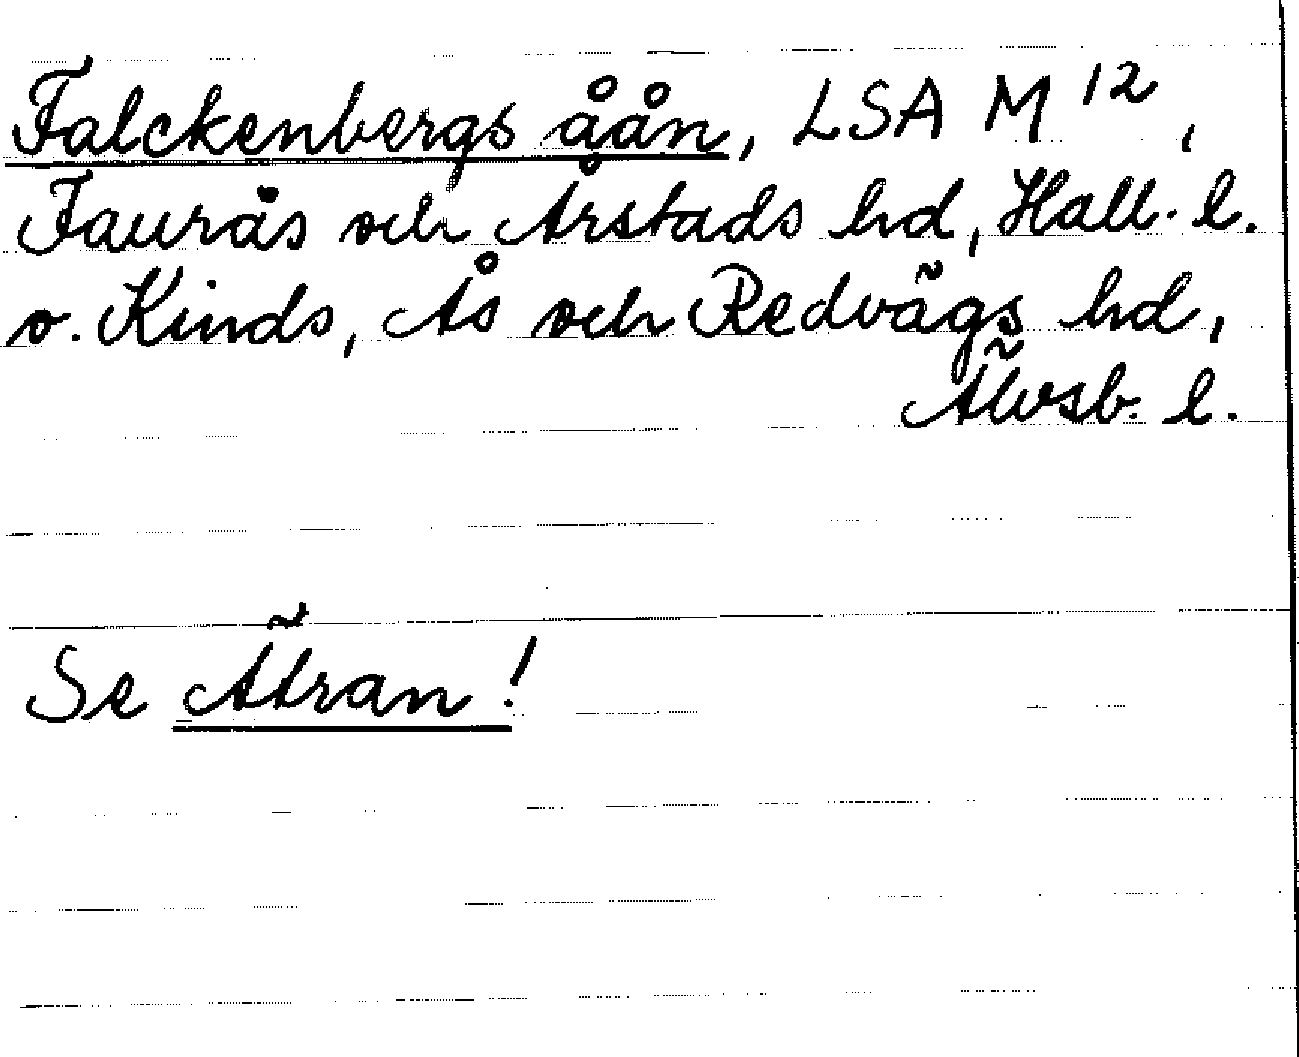 Falckenbergs åån, LSA M 12,
Faurås och Årstads hd, Hall. l.
o. Kinds, Ås och Redvägs hd,
Älvsb. l.
Se Ätran!